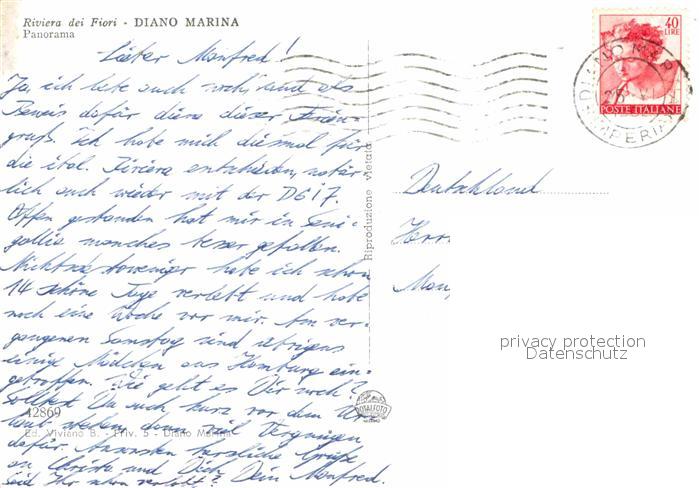 Riviera dei Fiori - DIANO MARINA
Panorama
40
LIRE
POSTE ITALIANE
DIANO MAR
IMPERIA
Lieber Manfred!
Ja, ich lebe auch noch, und als
Beweis dafür diene dieser Ferien-
gruß. Ich habe mich diesmal für
die ital. Riviera entschieden, natür-
lich auch wieder mit der DG 17.
Offen gestanden hat mir in Seni-
gallia manches besser gefallen.
Nichtsdestoweniger habe ich schon
14 schöne Tage verlebt und habe
noch eine Woche vor mir. Am ver-
gangenen Samstag sind übrigens
einige Mädchen aus Hamburg ein-
getroffen. Wie geht es Dir noch?
Solltest Du auch kurz vor dem Ur-
laub stehen, dann viel Vergnügen
dafür. Ansonsten herzliche Grüße
an Christa und Dich, Dein Manfred.
Seid Ihr schon verlobt?
Riproduzione vietata
Deutschland
Herr
Man,
privacy protection
Datenschutz
42869
Ed. Viviano B. - Priv. 5 - Diano Marina